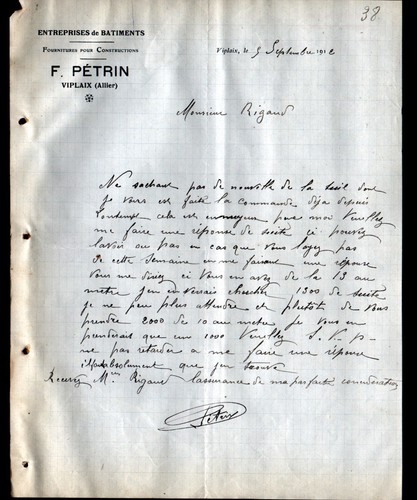 38
ENTREPRISES DE BATIMENTS
FOURNITURES POUR CONSTRUCTIONS
F. PÉTRIN
VIPLAIX (Allier)
Viplaix, le 5 Septembre 1912
Monsieur Rigaud
Ne sachant pas de nouvelle de la tuil dont
je vous est faite la commande déja depuis
lontemps cela est ennuyeux pour moi Veuillez
me faire une réponse de suite si je pouvez
lavoir ou pas en cas que vous layez pas
de cette semaine en me faisant une réponse
Vous me direz ci Vous en avez de la 13 au
metre jen en verais chercher 1300 de suite
je ne peu plus attendre et plutot de vous
prendre 2000 de 10 au metre je vous en
prenderait que un 1000 Veuillez S. V. P.
ne pas retarder a me faire une réponse
il faut absolument que jen trouve
Recevez Mr Rigaud lassurance de ma parfaite considération
Petrin